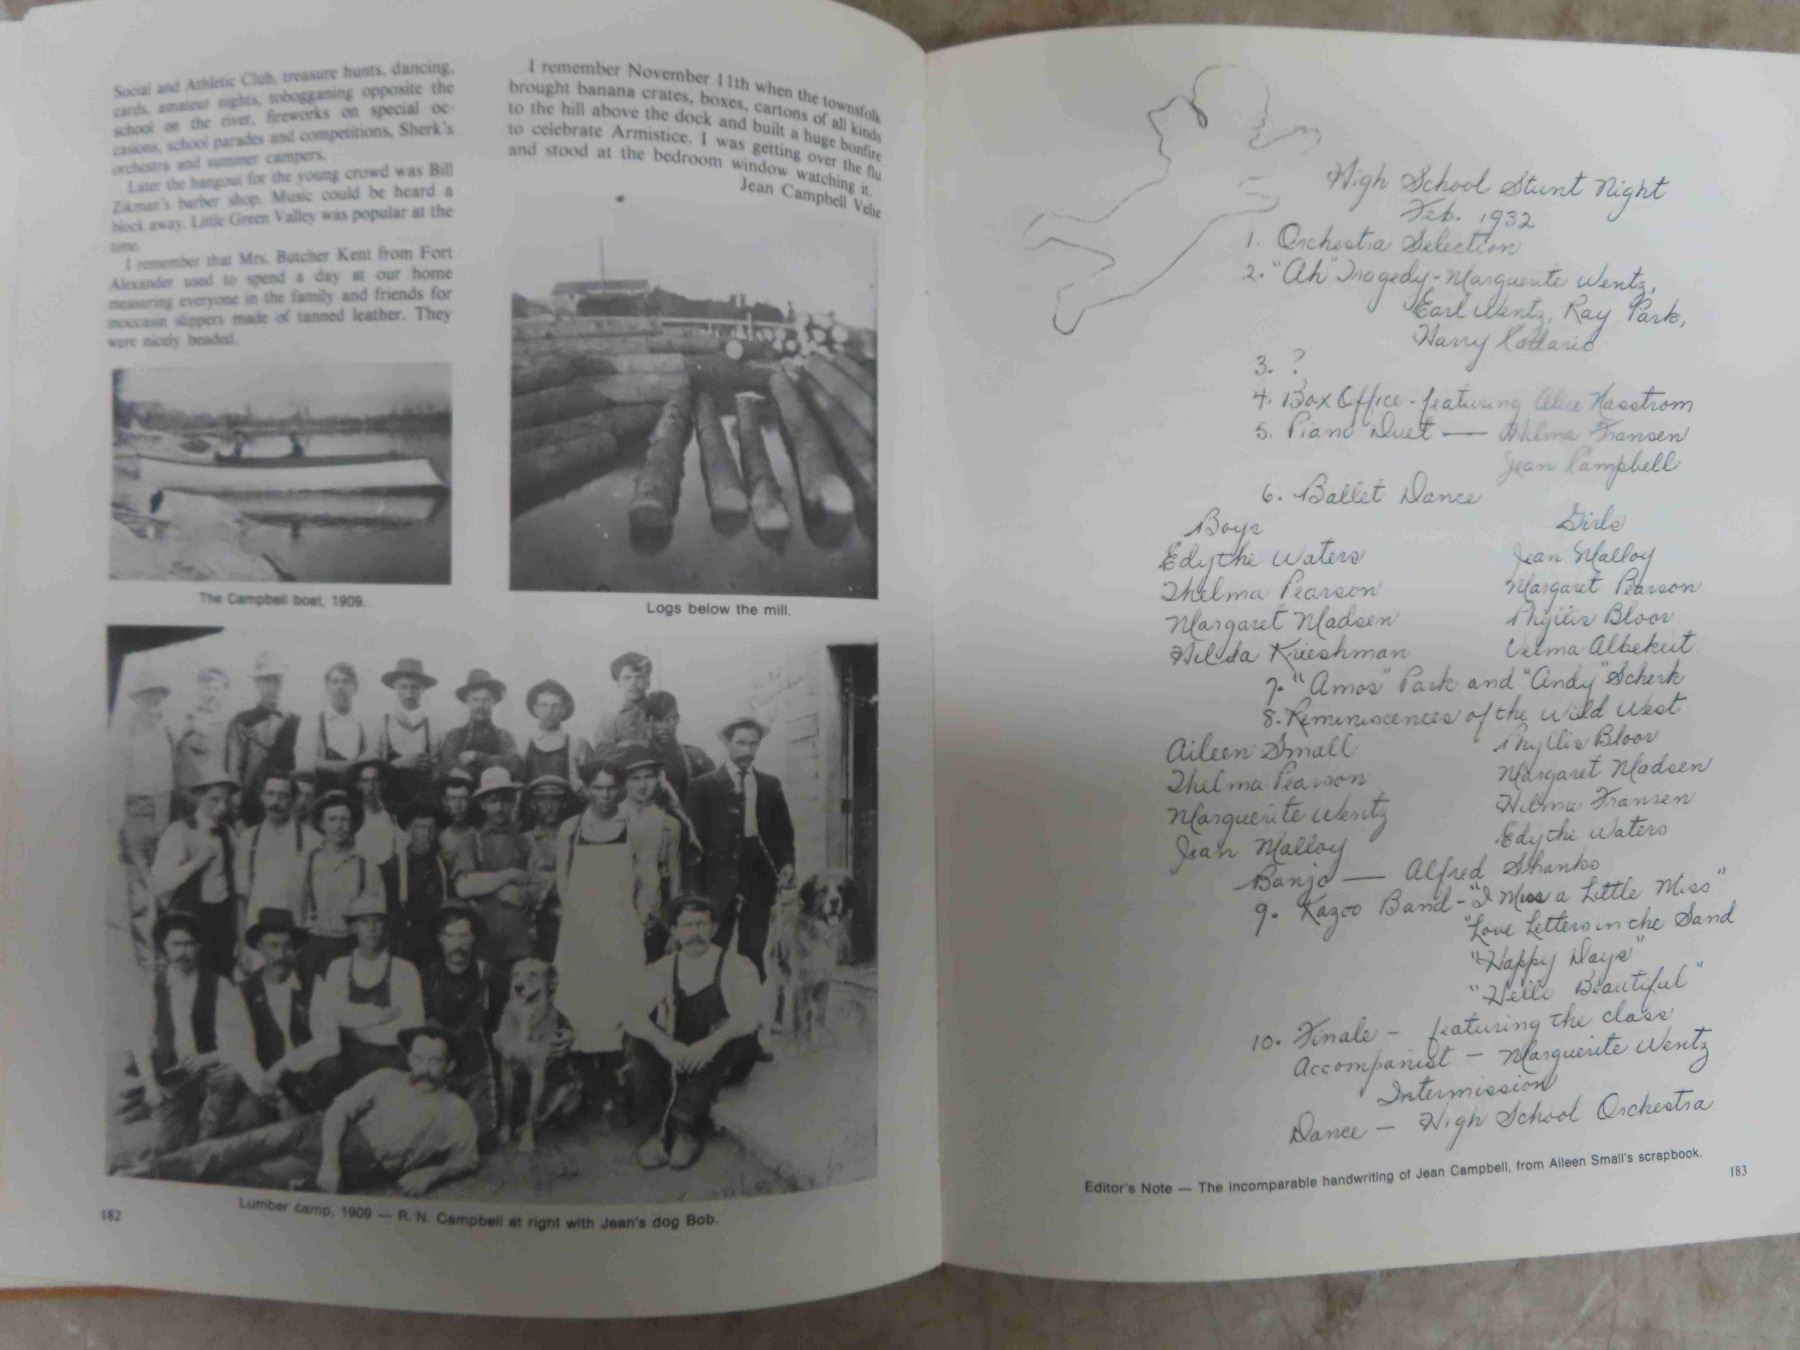 Social and Athletic Club, treasure hunts, dancing,
cards, amateur nights, tobogganing opposite the
school on the river, fireworks on special oc-
casions, school parades and competitions, Sherk's
orchestra and summer campers.
Later the hangout for the young crowd was Bill
Zikman's barber shop. Music could be heard a
block away. Little Green Valley was popular at the
time.
I remember that Mrs. Butcher Kent from Fort
Alexander used to spend a day at our home
measuring everyone in the family and friends for
moccasin slippers made of tanned leather. They
were nicely beaded.
The Campbell boat, 1909.
I remember November 11th when the townsfolk
brought banana crates, boxes, cartons of all kinds
to the hill above the dock and built a huge bonfire
to celebrate Armistice. I was getting over the flu
and stood at the bedroom window watching it.
Jean Campbell Vehe
Logs below the mill.
Lumber camp, 1909 — R. N. Campbell at right with Jean's dog Bob.
182
High School Stunt Night
Feb. 1932
1. Orchestra Selection
2. "Ah" Tragedy - Marguerite Wentz,
Earl Wentz, Ray Park,
Harry
3. ?
4. Box Office - featuring Alice Nasstrom
5. Piano Duet — Hilma Fransen
Jean Campbell
6. Ballet Dance
Boys Girls
Edythe Waters Jean Malloy
Thelma Pearson Margaret Pearson
Margaret Madsen Phyllis Bloor
Hilda Krieshman Velma Albekeit
7. "Amos" Park and "Andy" Scherk
8. Reminiscences of the Wild West
Aileen Small Phyllis Bloor
Thelma Pearson Margaret Madsen
Marguerite Wentz Hilma Fransen
Jean Malloy Edythe Waters
Banjo — Alfred Shanks
9. Kazoo Band - "I Miss a Little Miss"
"Love Letters in the Sand
"Happy Days"
"Hello Beautiful"
10. Finale - featuring the class
Accompanist - Marguerite Wentz
Intermission
Dance - High School Orchestra
Editor's Note — The incomparable handwriting of Jean Campbell, from Aileen Small's scrapbook.
183